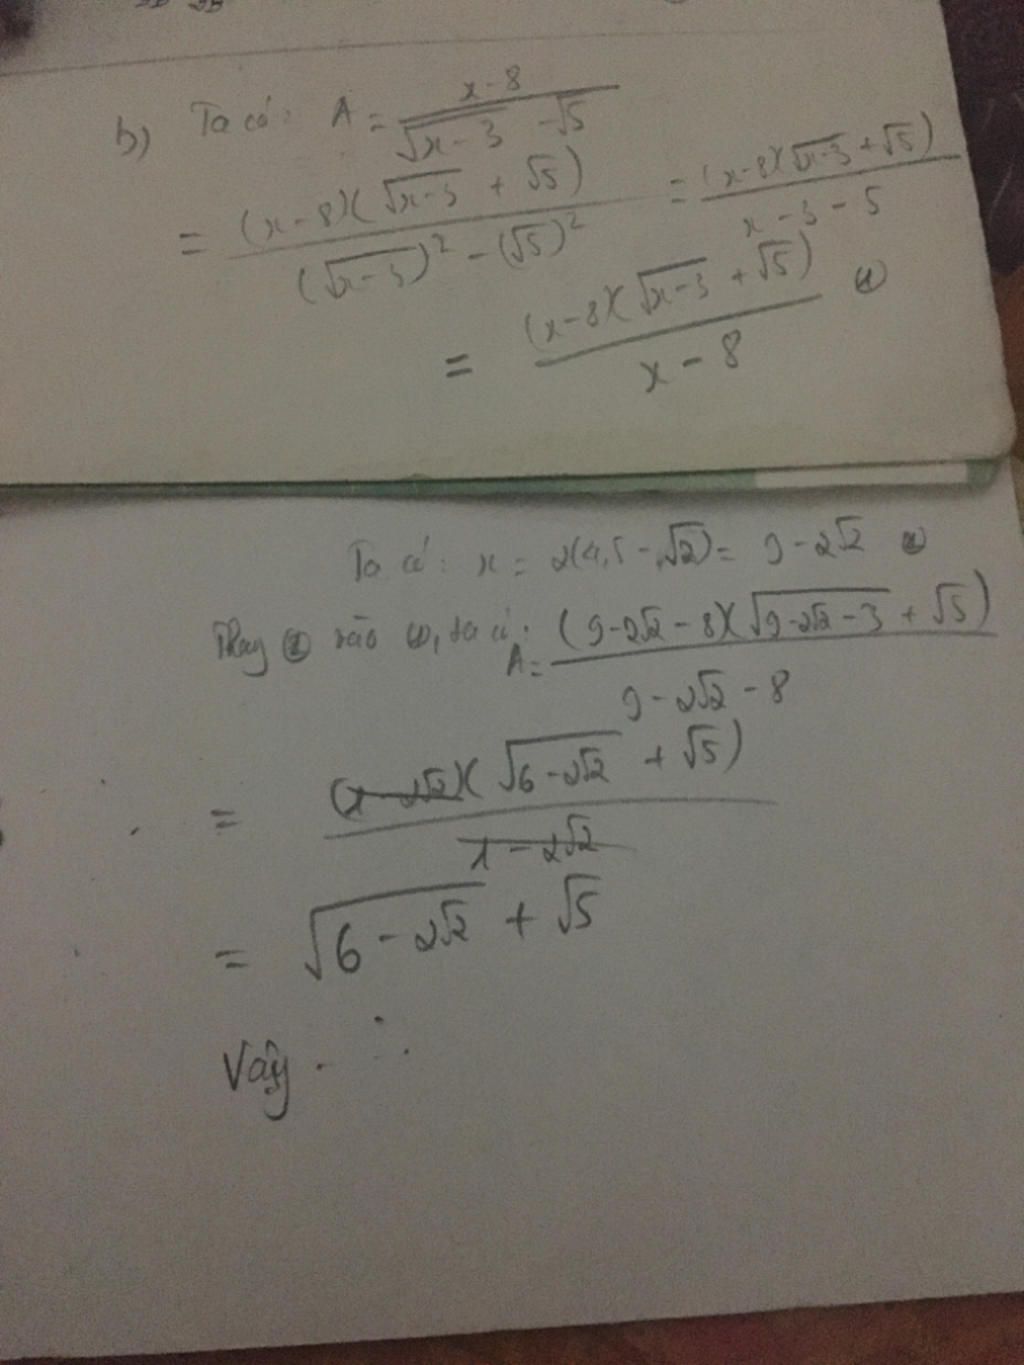 b) Ta có: A = \frac{x-8}{\sqrt{x-3} - \sqrt{5}}
= \frac{(x-8)(\sqrt{x-3} + \sqrt{5})}{(\sqrt{x-3})^2 - (\sqrt{5})^2} = \frac{(x-8)(\sqrt{x-3} + \sqrt{5})}{x-3-5}
= \frac{(x-8)(\sqrt{x-3} + \sqrt{5})}{x-8} (1)
Ta có: x = 2(4,5 - \sqrt{2}) = 9 - 2\sqrt{2} (2)
Thay (2) vào (1), ta có: A = \frac{(9-2\sqrt{2}-8)(\sqrt{9-2\sqrt{2}-3} + \sqrt{5})}{9-2\sqrt{2}-8}
= \frac{(1-2\sqrt{2})(\sqrt{6-2\sqrt{2}} + \sqrt{5})}{1-2\sqrt{2}}
= \sqrt{6-2\sqrt{2}} + \sqrt{5}
Vậy ...